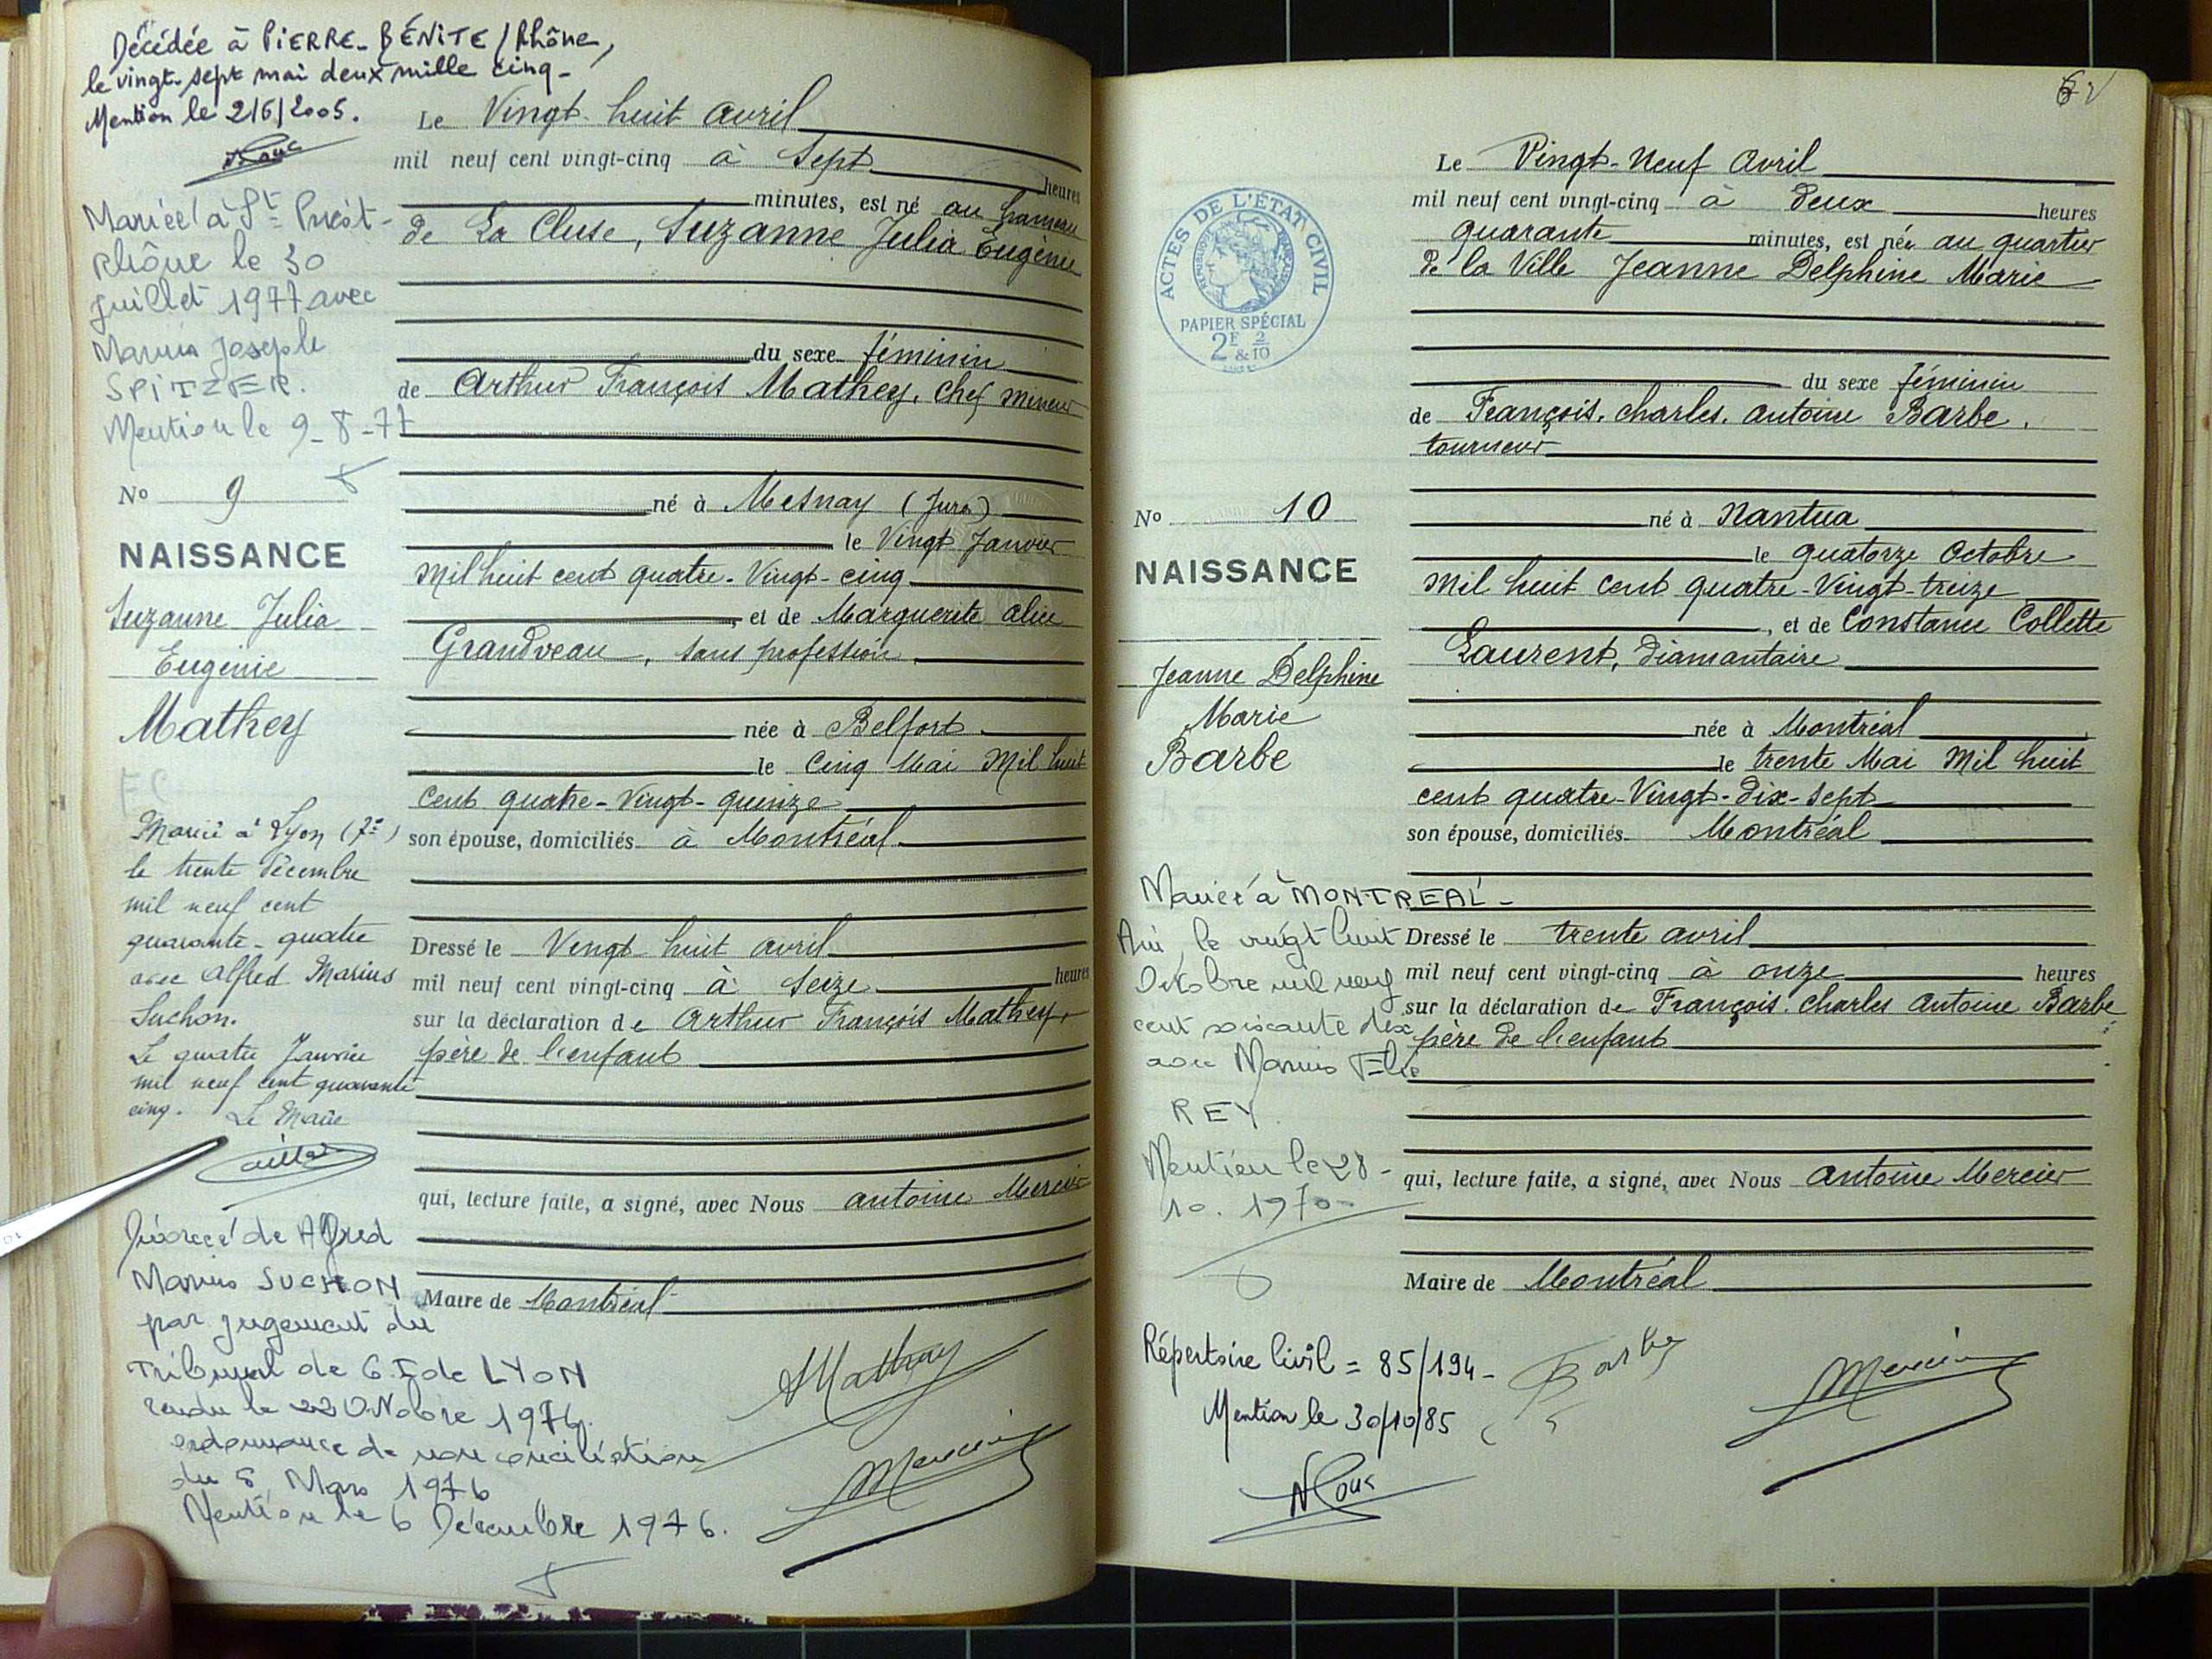 Décédée à PIERRE-BÉNITE /Rhône,
le vingt-sept mai deux mille cinq-
Mention le 2/6/2005.
Mariée à St Priest-
Rhône le 30
juillet 1977 avec
Marius Joseph
SPITZER.
Mention le 9-8-77
No 9
NAISSANCE
Suzanne Julia
Eugénie
Mathey
Marié à Lyon (7e)
le trente Décembre
mil neuf cent
quarante-quatre
avec Alfred Marius
Suchon.
Le quatre Janvier
mil neuf cent quarante
cinq. Le Maire
Divorcé de Alfred
Marius SUCHON
par jugement du
Tribunal de G.I de LYON
rendu le 22 Octobre 1976.
ordonnance de non conciliation
du 8 Mars 1976
Mention le 6 Décembre 1976.
Le Vingt-huit avril
mil neuf cent vingt-cinq à Sept heures
minutes, est né au hameau
de La Cluse, Suzanne Julia Eugénie
du sexe féminin
de Arthur François Mathey, chef mineur
né à Mesnay (Jura)
le Vingt Janvier
mil huit cent quatre-Vingt-cinq
, et de Marguerite alice
Grandveau, sans profession
née à Belfort
le cinq Mai Mil huit
cent quatre-Vingt-quinze
son épouse, domiciliés à Montréal
Dressé le Vingt huit avril
mil neuf cent vingt-cinq à Seize heures
sur la déclaration de Arthur François Mathey,
père de l'enfant
qui, lecture faite, a signé, avec Nous antoine Mercier
Maire de Montréal
AMathey
Mercier
62
ACTES DE L'ÉTAT CIVIL
RÉPUBLIQUE FRANÇAISE
PAPIER SPÉCIAL
2F & 2/10
No 10
NAISSANCE
Jeanne Delphine
Marie
Barbe
Mariée à MONTREAL-
Ain, le vingt huit
Octobre mil neuf
cent soixante dix
avec Marius Elie
REY
Mention le 28-
10.1970-
Répertoire Civil = 85/194-
Mention le 30/10/85
Le Vingt-Neuf avril
mil neuf cent vingt-cinq à deux heures
quarante minutes, est née au quartier
de la Ville Jeanne Delphine Marie
du sexe féminin
de François, charles, antoine Barbe,
tourneur
né à Nantua
le quatorze Octobre
Mil huit cent quatre-Vingt-treize
, et de Constance Collette
Laurent, Diamantaire
née à Montréal
le trente Mai Mil huit
cent quatre-Vingt-dix-sept
son épouse, domiciliés Montréal
Dressé le trente avril
mil neuf cent vingt-cinq à onze heures
sur la déclaration de François charles antoine Barbe
père de l'enfant
qui, lecture faite, a signé, avec Nous antoine Mercier
Maire de Montréal
Barbe
Mercier